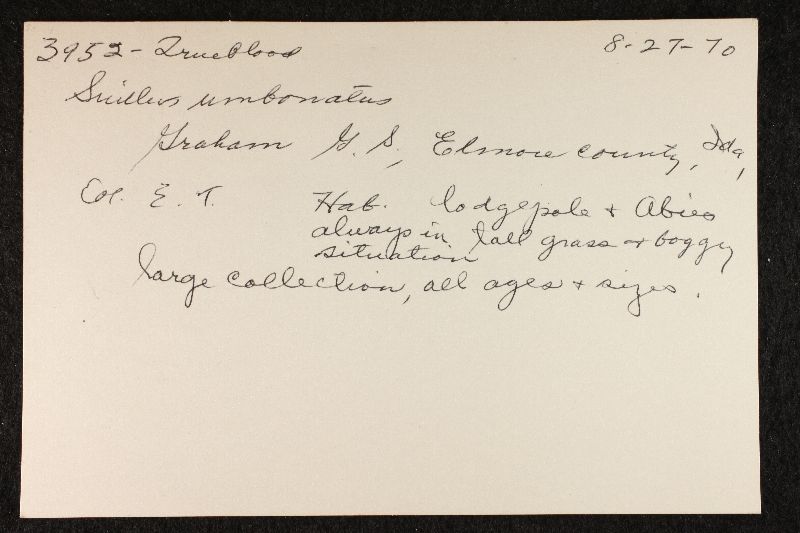 3952 - Trueblood 8-27-70
Suillus umbonatus
Graham G. S., Elmore county, Ida,
Col. E. T. Hab. lodgepole + Abies
always in tall grass or boggy
situation
large collection, all ages + sizes.